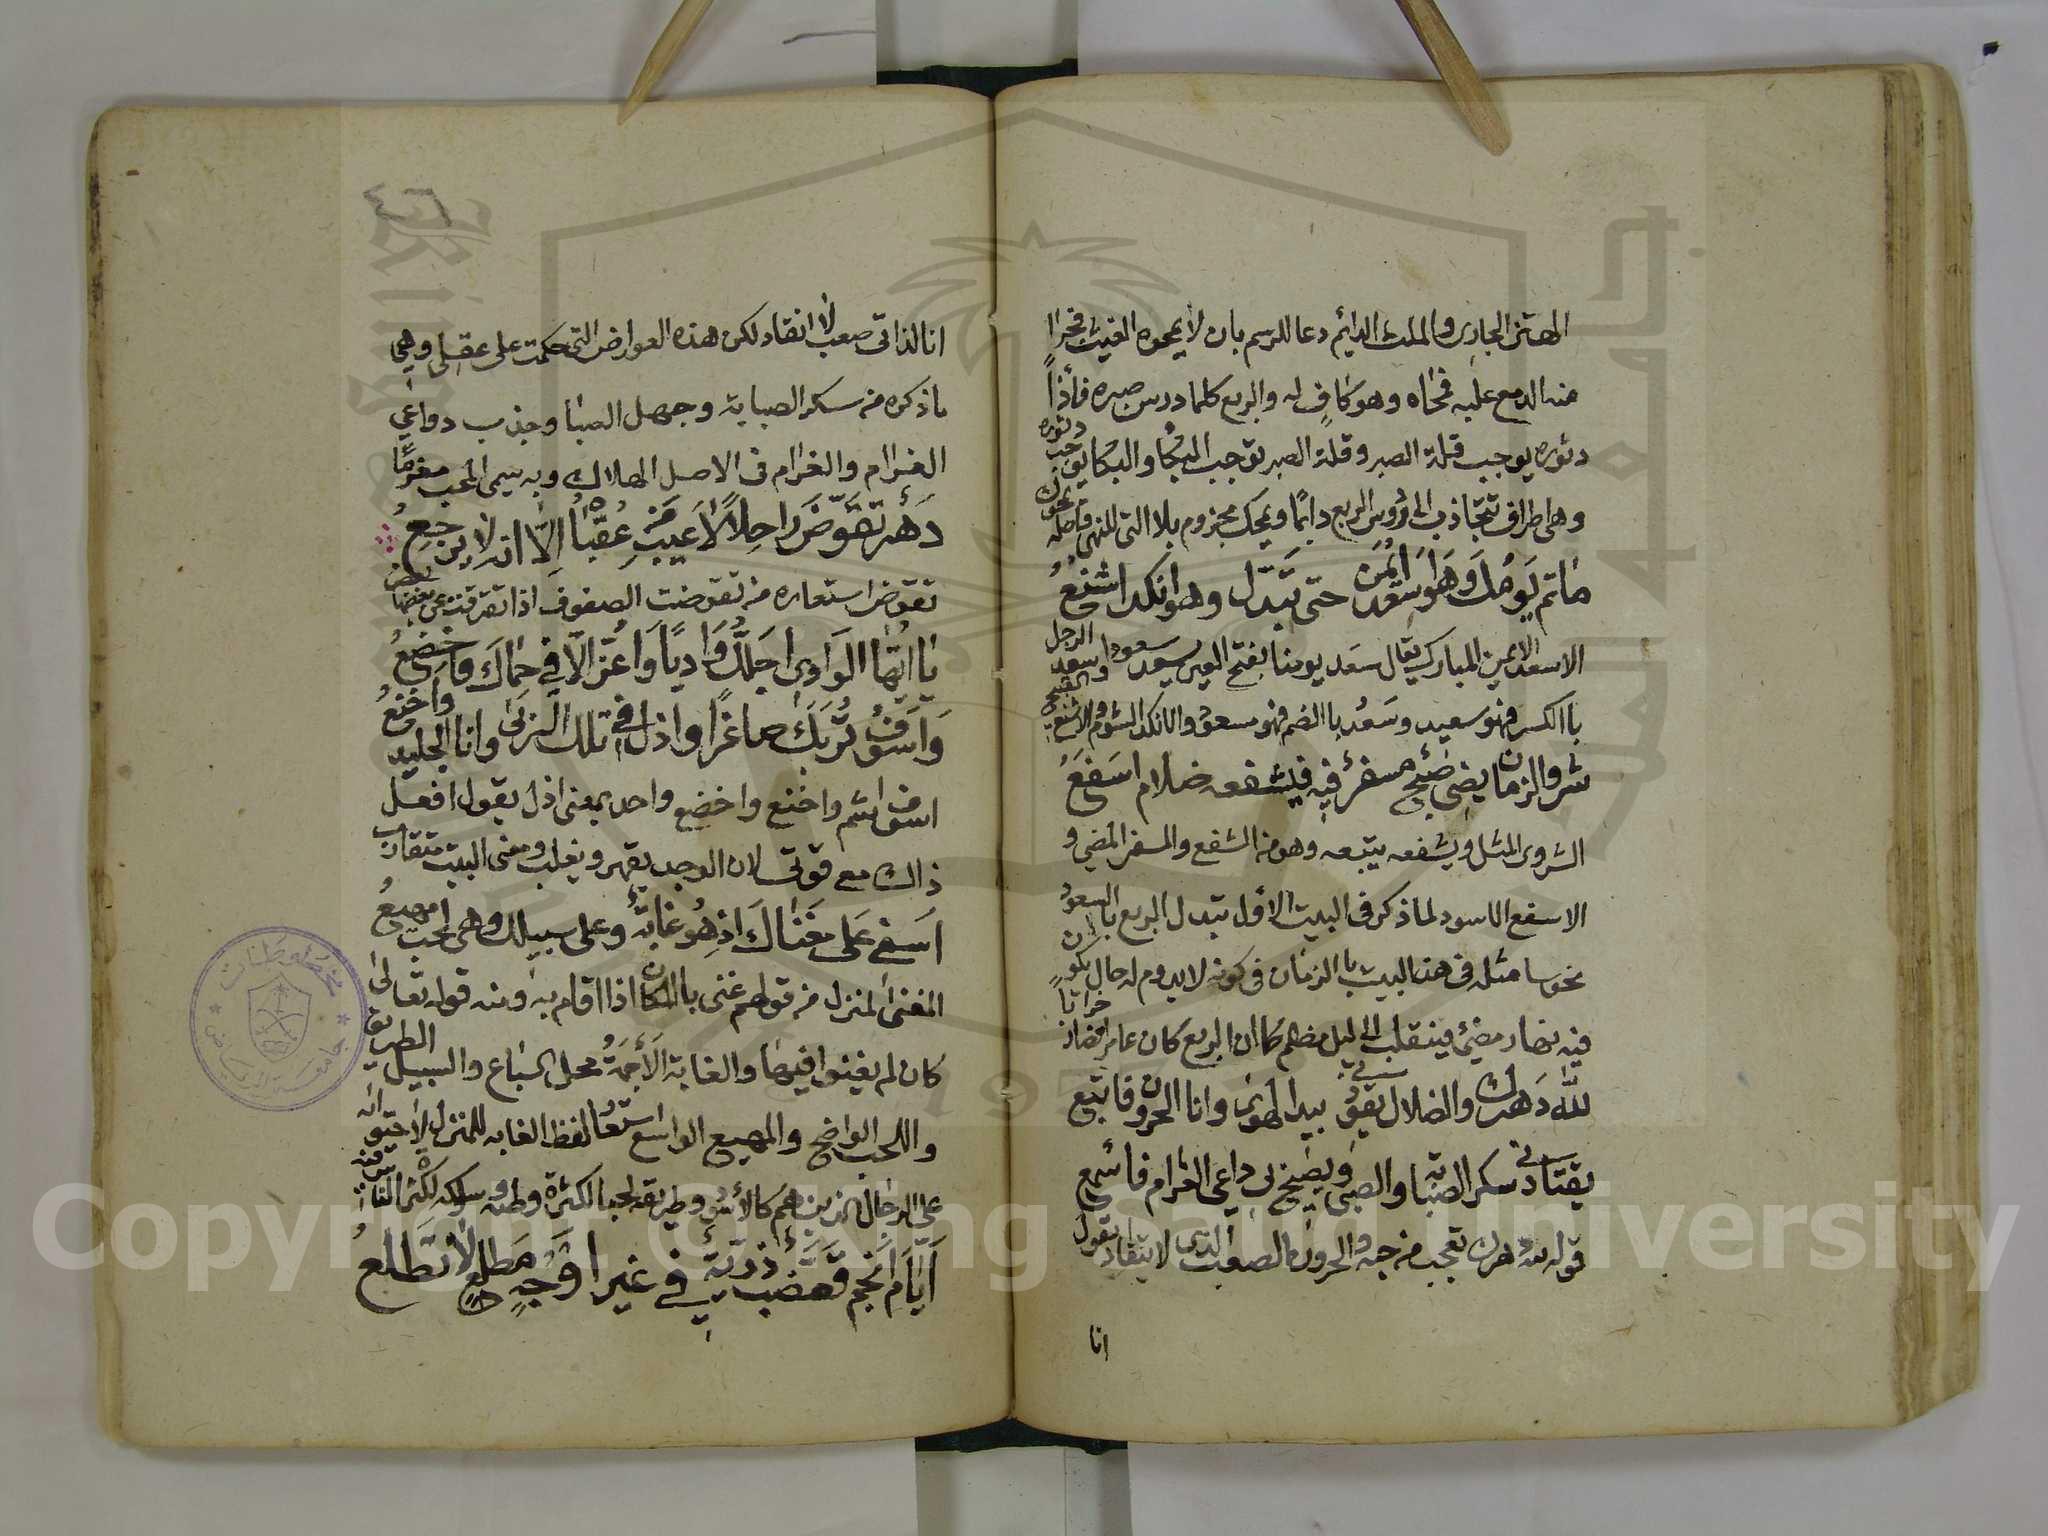 الهتن الجاري والملث الدايم دعا للرسم بان لا يمحوه الغيث فجرا
منه الدمع عليه فمحاه وهو كاف له والربع كلما درس صبره فأذًا
دثوره يوجب قلة الصبر وقلة الصبر توجب البكا والبكا يوجب دثوره
وهي اطراف تتجاذب الى دروس الربع دايمًا ويمحك مجزوم بلا التي للنهي فاصله يمحوك
ما تم يومك وهو اسعد ايمن حتى تبدل وهو انكد اشنع
الاسعد الايمن المبارك يقال سعد يومنا بفتح العين يسعد سعودا وسعد الرجل
باالكسر فهو سعيد وسعد باالضم فهو مسعود والانكد الشوم والاشنع القبيح
شروا الزمان يضئ صبح مسفر فيه فيشفعه ضلام اسفع
الشروى المثل ويشفعه يتبعه وهو من الشفع والمسفر المضي و
الاسفع الاسود لما ذكر في البيت الاول تبدل الربع باالسعود
نحوسا مثله في هذا البيت باالزمان في كونه لا يدوم له حال يكون
فيه نهار مضئ فينقلب الى ليل مظلم كما ان الربع كان عامر فصار خرابا
لله دهرك والضلال يقودني بيد الهوى وانا الحرون فاتبع
يقتادني سكر الصبابة والصبى ويصيح بي داعي الغرام فاسمع
قوله لله دهرك تعجب من حبه والحرون الصعب الذي لا ينقاد يقول
انا
انا لذاتي صعب لا انقاد لكن هذه العوارض التي حكمت على عقلي وهي
ما ذكره من سكر الصبابة وجهل الصبا وجذب دواعي
الغرام والغرام في الاصل الهلاك وبه سمي المحب مغرمًا
دهر تقوض راحلا لا عيب من عقباه الا انه لا يرجع
تقوض استعاره من تقوضت الصفوف اذا تفرقت عن بعضها بعض
يا ايها الوادي اجلك واديا واعز الا في حماك فاخضع
واسوف تربك صاغرا واذل في تلك الربى وانا الجليد واخنع
اسوف اشم واخنع واخضع واحد بمعنى اذل يقول افعل
ذالك مع قوتي لان الوجد يقهر ويغلب ومعنى البيت متقارب
اسفي على مغناك اذ هو غابة وعلى سبيلك وهي لحب مهيع
المغنى المنزل من قولهم غنى باالمكان اذا اقام به ومنه قوله تعالى
كان لم يغنوا فيها والغابة الاجمة محل السباع والسبيل الطريق
واللحب الواضح والمهيع الواسع استعار لفظ الغابه للمنزل لاحتوائه
على الرجال الذين هم كالاسود وطريقه لحبا لكثرة وطئه وسلوكه لكثرة الناس فيه
ايام انجم قعضب درية في غير اوجه مطلع لا تطلع
مخطوطات
جامعة الرياض
Copyright © King Saud University
جامعة الملك سعود